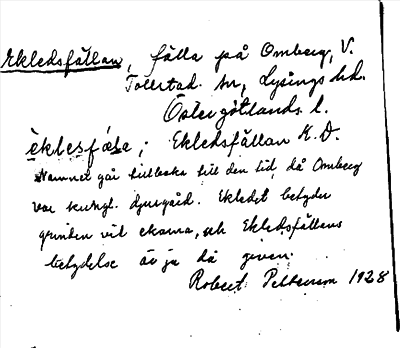 Ekledsfällan, fälla på Omberg, V.
Tollstad sn, Lysings hd.
Östergötlands l.
èklesfǽla; Ekledsfällan K. D.
Namnet går tillbaka till den tid, då Omberg
var kungl. djurgård. Ekledet betyder
grinden vid ekarna, och Ekledsfällans
betydelse är ju då given.
Robert Pettersson 1928